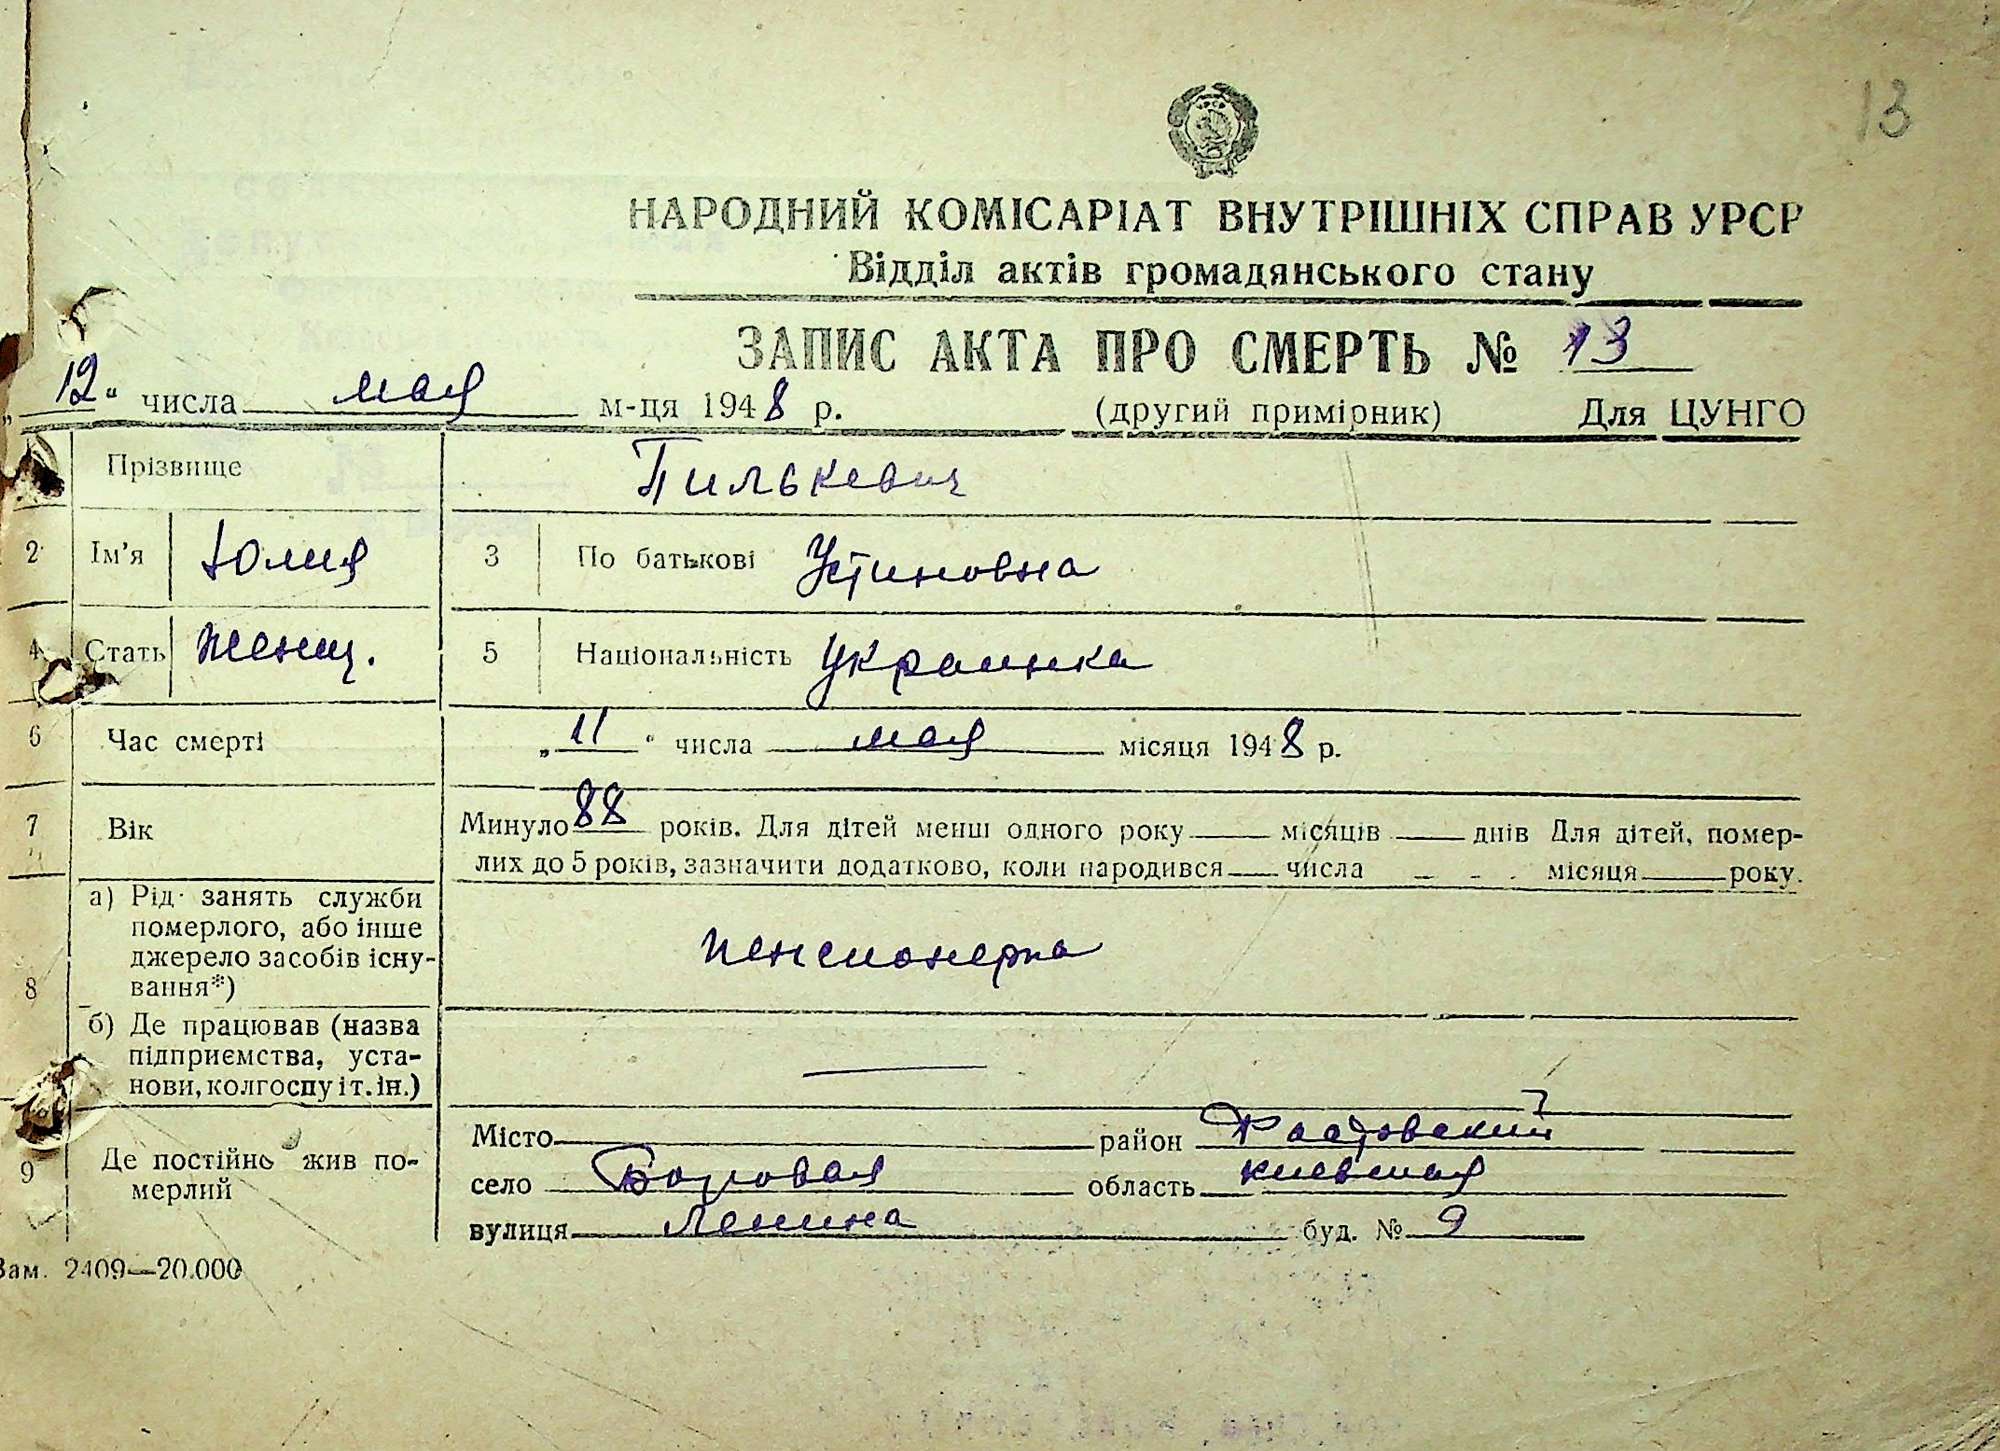 13
НАРОДНИЙ КОМІСАРІАТ ВНУТРІШНІХ СПРАВ УРСР
Відділ актів громадянського стану
ЗАПИС АКТА ПРО СМЕРТЬ № 13
„12“ числа мая м-ця 1948 р. (другий примірник) Для ЦУНГО
Прізвище Пилькевич
2 Ім'я Юлия 3 По батькові Устиновна
4 Стать женщ. 5 Національність украинка
6 Час смерті „11“ числа мая місяця 1948 р.
7 Вік Минуло 88 років. Для дітей менш одного року — місяців — днів Для дітей, помер-
лих до 5 років, зазначити додатково, коли народився — числа місяця — року.
8 а) Рід занять служби
померлого, або інше
джерело засобів існу-
вання*)
пенсионерка
б) Де працював (назва
підприємства, уста-
нови, колгоспу і т. ін.)
—
9 Де постійно жив по-
мерлий
Місто район Фастовский
село Боровая область киевская
вулиця Ленина буд. № 9
Зам. 2409—20.000